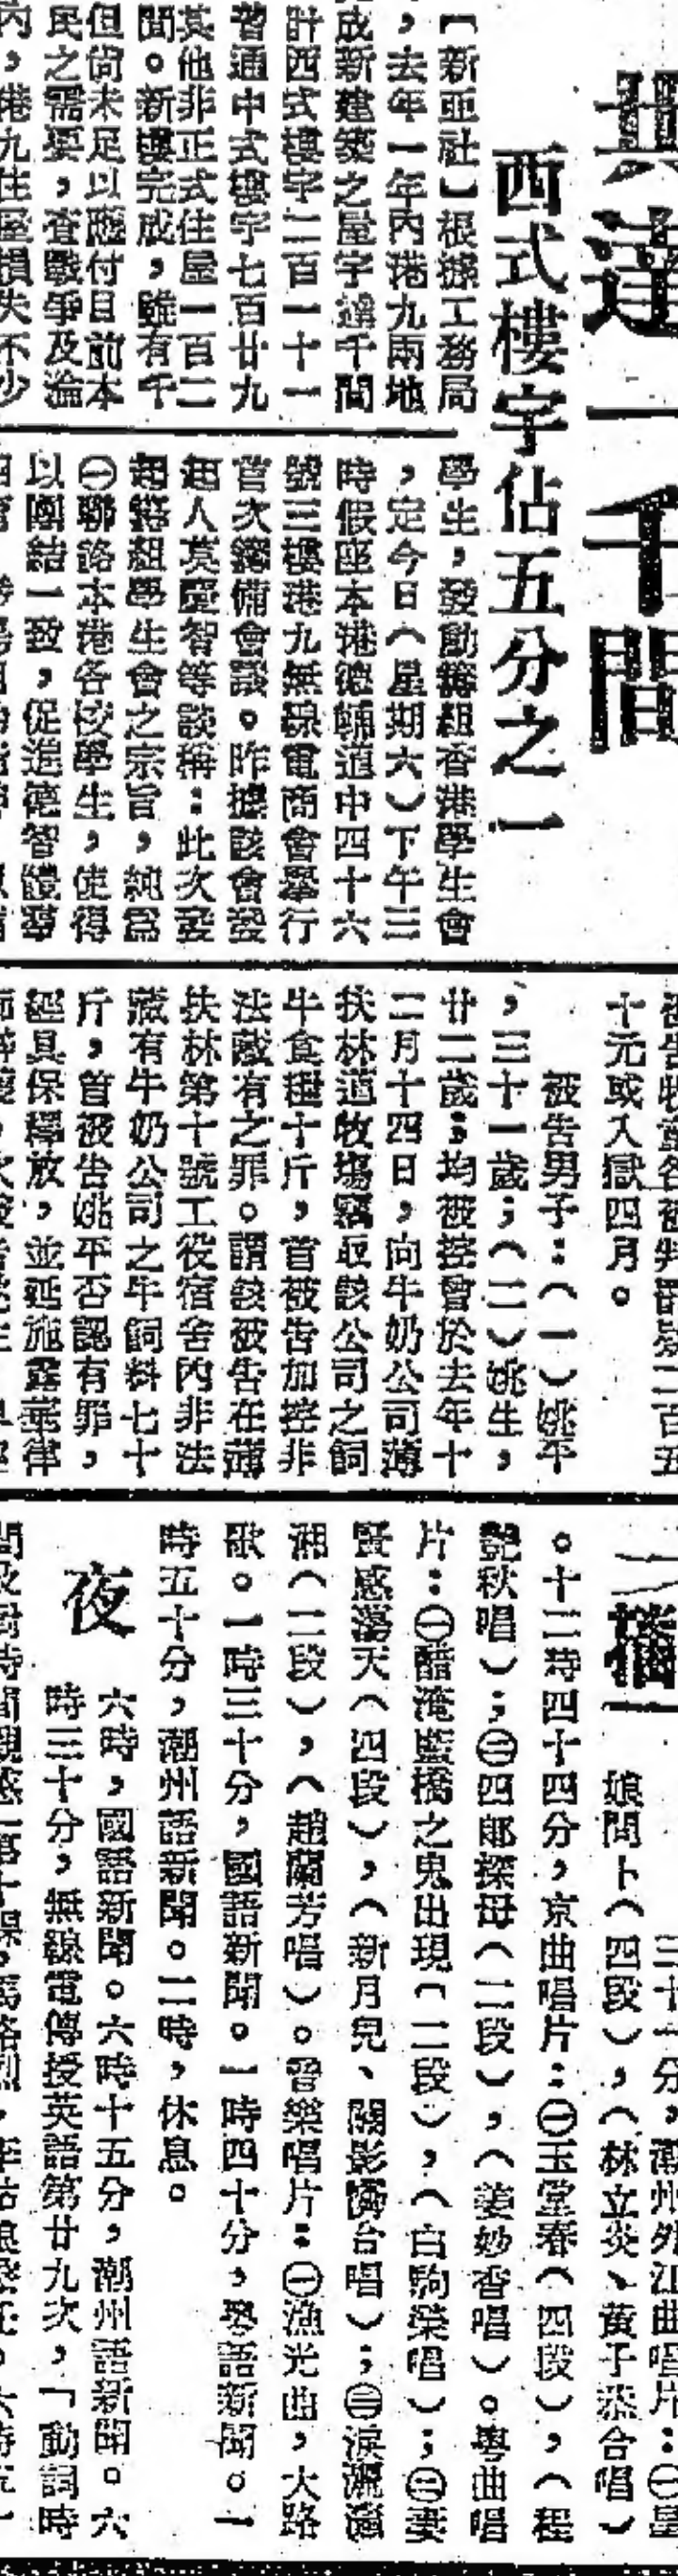 共達一千間
西式樓宇佔五分之一
【新亞社】根據工務局
，去年一年內港九兩地
成新建築之屋宇達千間
計西式樓宇二百一十一
普通中式樓宇七百廿九
其他非正式住屋一百二
間。新樓完成，雖有千
但尚未足以應付目前本
民之需要，查戰爭及淪
內，港九住屋損失不少
學生，發動籌組香港學生會
，定今日（星期六）下午三
時假座本港德輔道中四十六
號三樓港九無線電商會舉行
首次籌備會議。昨據該會發
起人莫慶智等談稱：此次發
起籌組學生會之宗旨，純為
㊀聯絡本港各校學生，使得
以團結一致，促進德智體羣
被告
各被判罰款二百五
十元或入獄四月。
被告男子：（一）姚平
，三十一歲；（二）姚生，
廿二歲；均被控曾於去年十
二月十四日，向牛奶公司薄
扶林道牧場竊取該公司之飼
牛食糧十斤，首被告加控非
法藏有之罪。謂該被告在薄
扶林第十號工役宿舍內非法
藏有牛奶公司之牛飼料七十
斤，首被告姚平否認有罪，
經具保釋放，並延施露華律
三十一分，潮州外江曲唱片：㊀星
娘問卜（四段），（林立炎、黃子丞合唱）
。十二時四十四分，京曲唱片：㊀玉堂春（四段），（程
艷秋唱）；㊁四郎探母（二段），（姜妙香唱）。粵曲唱
片：㊀醋淹藍橋之鬼出現（二段），（白駒榮唱）；㊁妻
賢感蕩天（四段），（新月兒、關影憐合唱）；㊂淚灑瀟
湘（二段），（趙蘭芳唱）。音樂唱片：㊀漁光曲，大路
歌。一時三十分，國語新聞。一時四十分，粵語新聞。一
時五十分，潮州語新聞。二時，休息。
夜
六時，國語新聞。六時十五分，潮州語新聞。六
時三十分，無線電傳授英語第廿九次，「動詞時